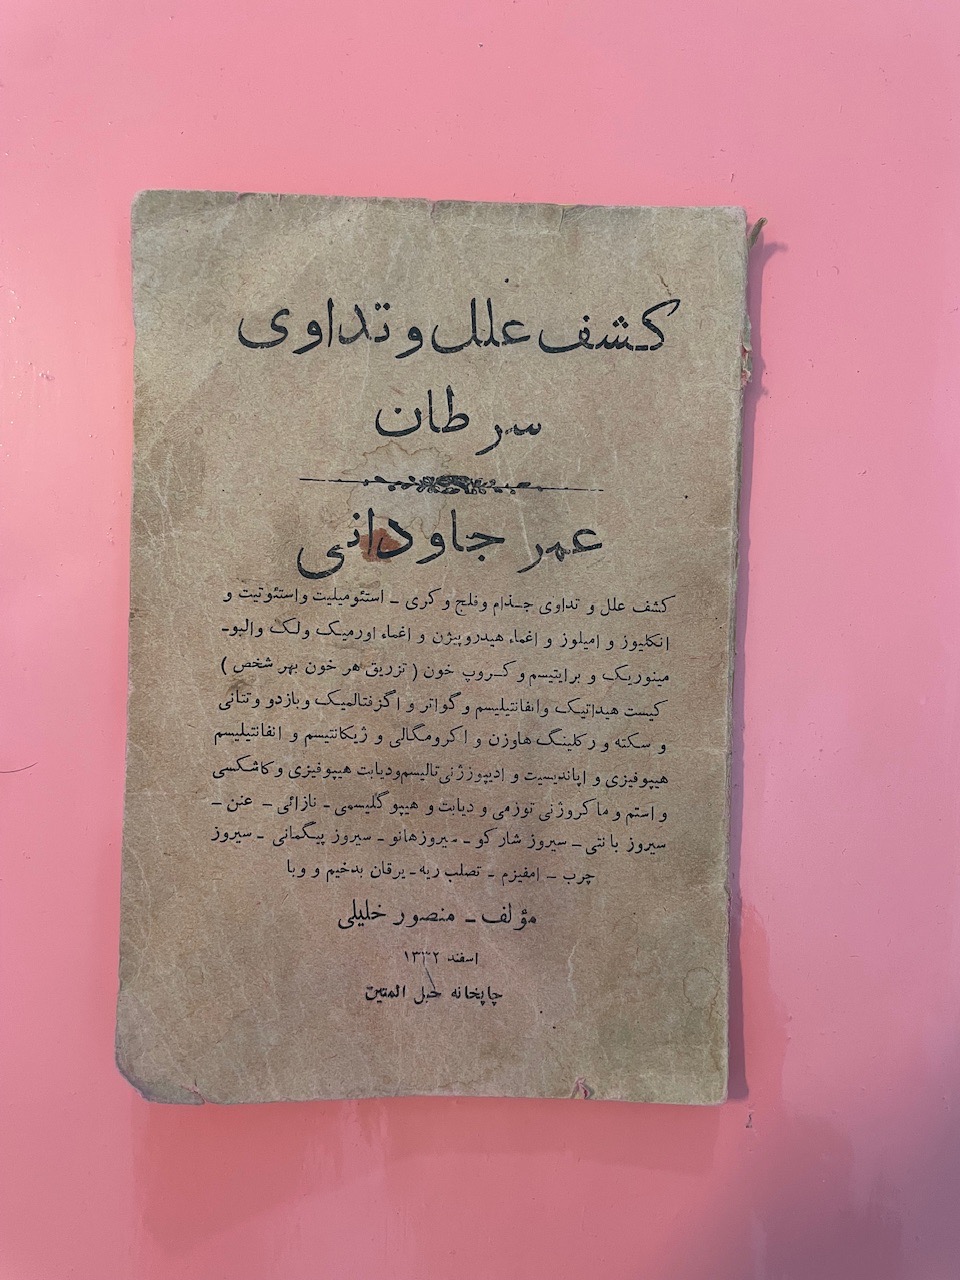 کشف علل و تداوی
سرطان
عمر جاودانی
کشف علل و تداوی جذام و فلج و کری ـ استئومیلیت و استئوتیت و
انکلیوز و امیلوز و اغماء هیدروپیژن و اغماء اورمیک ولک والبو-
مینوریک و برایتیسم و کروپ خون ( تزریق هر خون بهر شخص )
کیست هیداتیک و انفانتیلیسم و گواتر و اگزفتالمیک و بازدو و تتانی
و سکته و رکلینگ هاوزن و اکرومگالی و ژیکانتیسم و انفانتیلیسم
هیپوفیزی و اپاندیسیت و ادیپوزژنی تالیسم ودیابت هیپوفیزی و کاشکسی
و استم و ماکروژنی توزمی و دیابت و هیپو گلیسمی ـ نازائی ـ عنن ـ
سیروز بانتی ـ سیروز شارکو ـ سیروزهانو ـ سیروز پیگمانی ـ سیروز
چرب ـ امفیزم ـ تصلب ریه ـ یرقان بدخیم و وبا
مؤلف ـ منصور خلیلی
اسفند ۱۳۳۲
چاپخانه حبل المتین